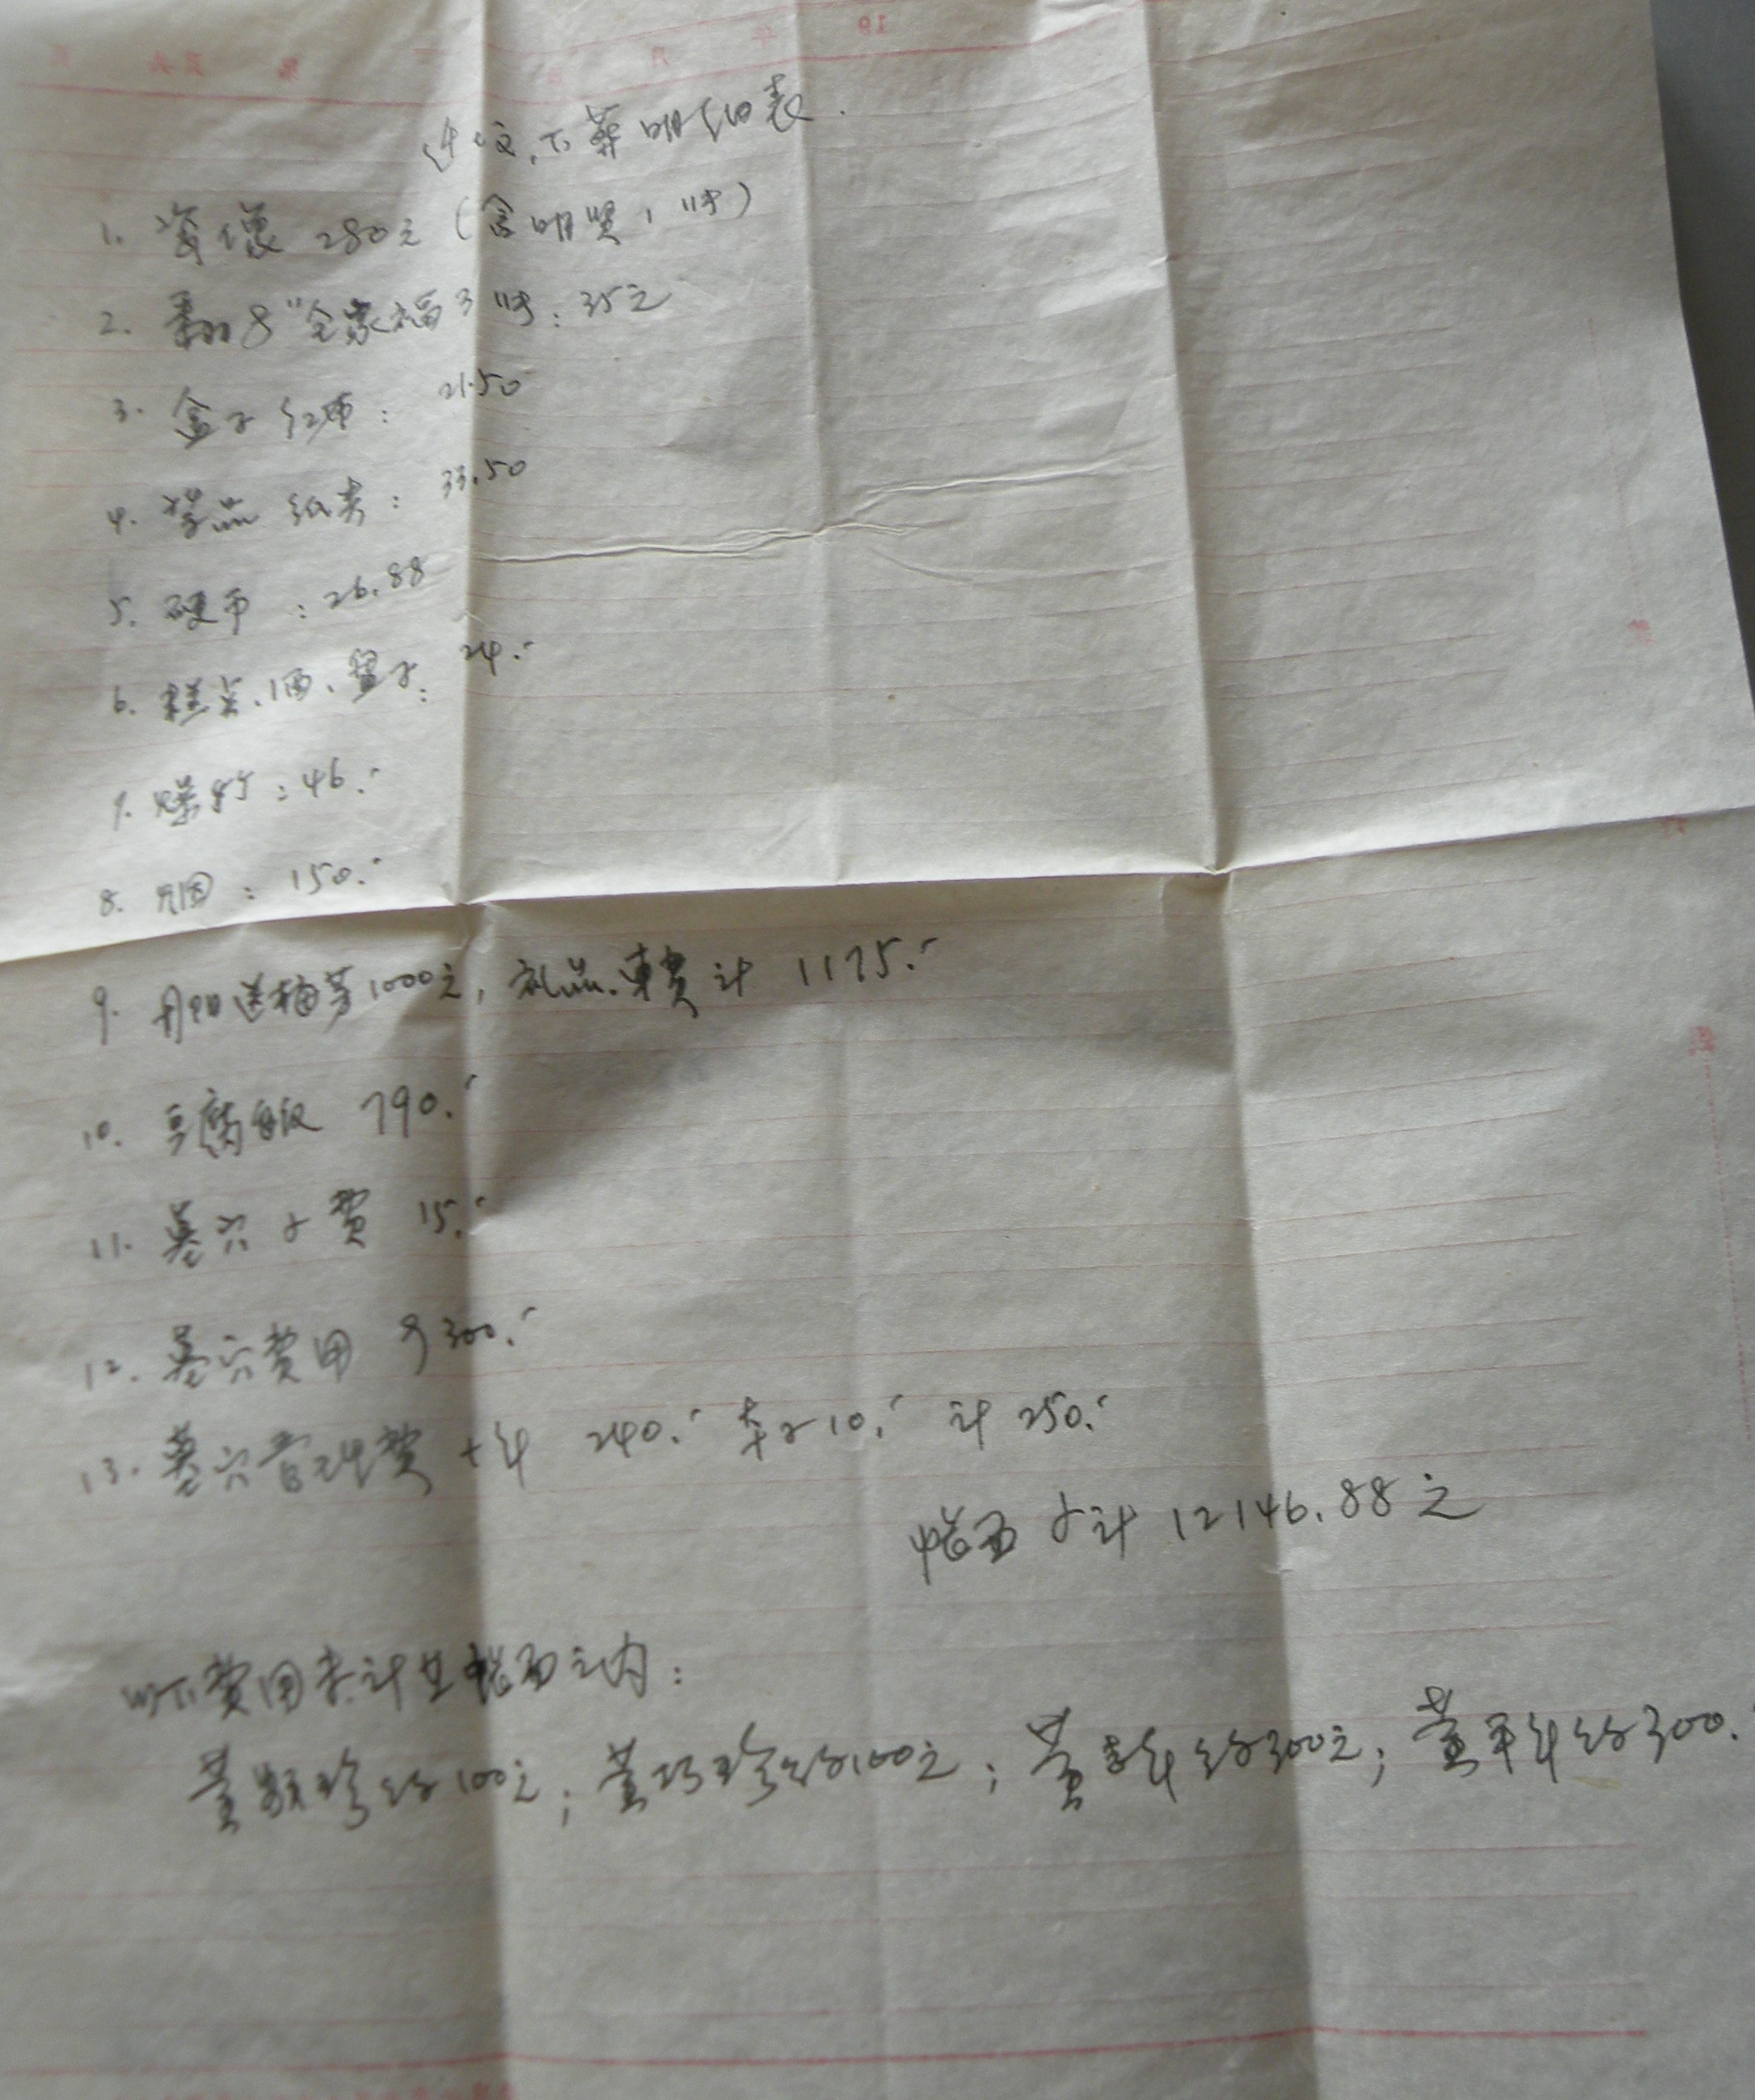 迁坟、下葬明细表.
1. 瓷像 280元(含 1吋)
2. 翻8"全家福3吋:35元
3. 盒子 红布: 21.50
4. 祭品 纸类: 33.50
5. 硬币 :26.88
6. 糕点、酒、盘子: 24.-
7. 爆竹:46.-
8. 烟 : 150.-
9. 丹阳送梅芳1000元, 礼品、車費计 1175.-
10. 豆腐飯 790.-
11. 墓穴 费 15.-
12. 墓穴费用 9300.-
13. 墓穴管理费 十年 240.- 本子10.- 计 250.-
帐面 计 12146.88元
以下费用未计在帐面之内:
黄 珍给100元; 黄巧珍给100元; 黄 年给300元; 黄平年给300.-